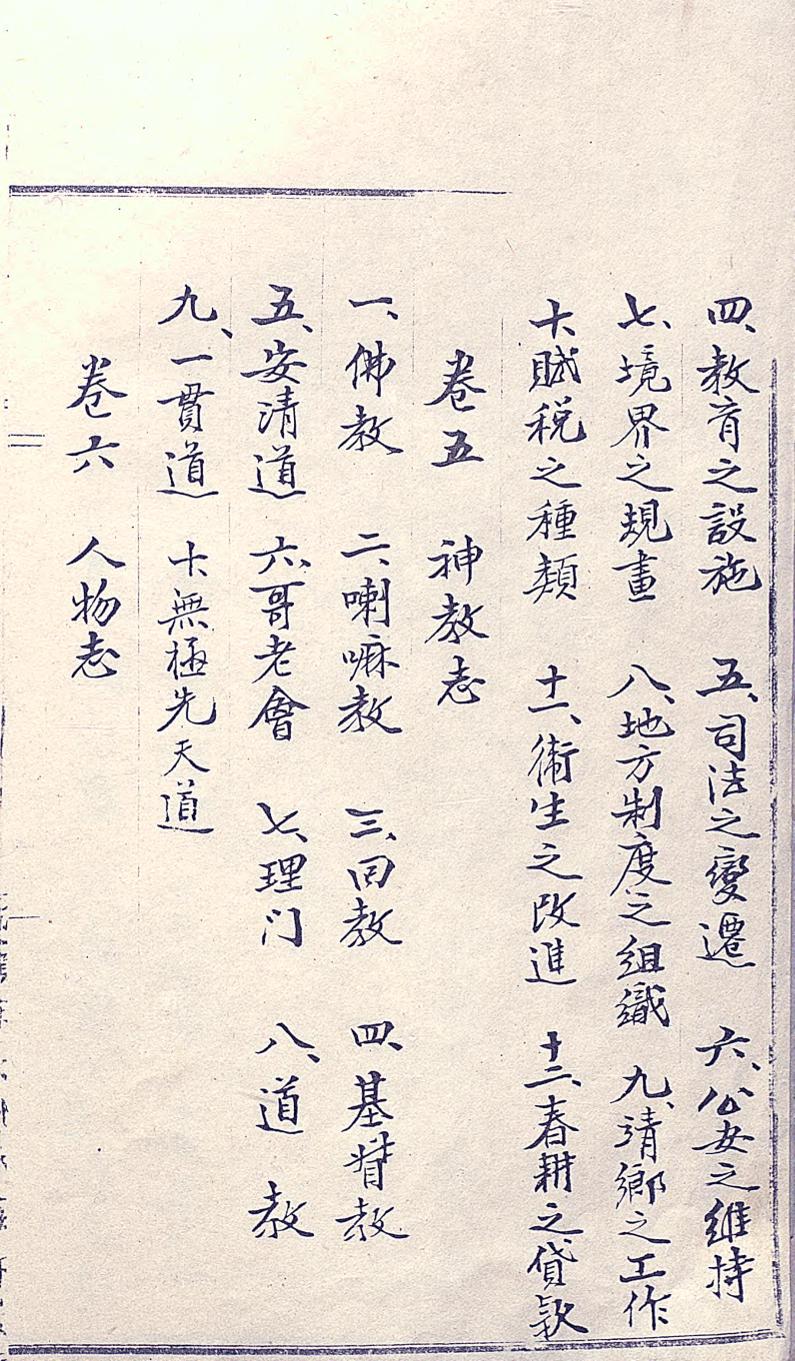 四、教育之設施 五、司法之變遷 六、公安之維持
七、境界之規畫 八、地方制度之組織 九、清鄉之工作
十、賦税之種類 十一、衛生之改進 十二、春耕之貸款
卷五 神教志
一、佛教 二、喇嘛教 三、回教 四、基督教
五、安清道 六、哥老會 七、理门 八、道教
九、一貫道 十、無極先天道
卷六 人物志